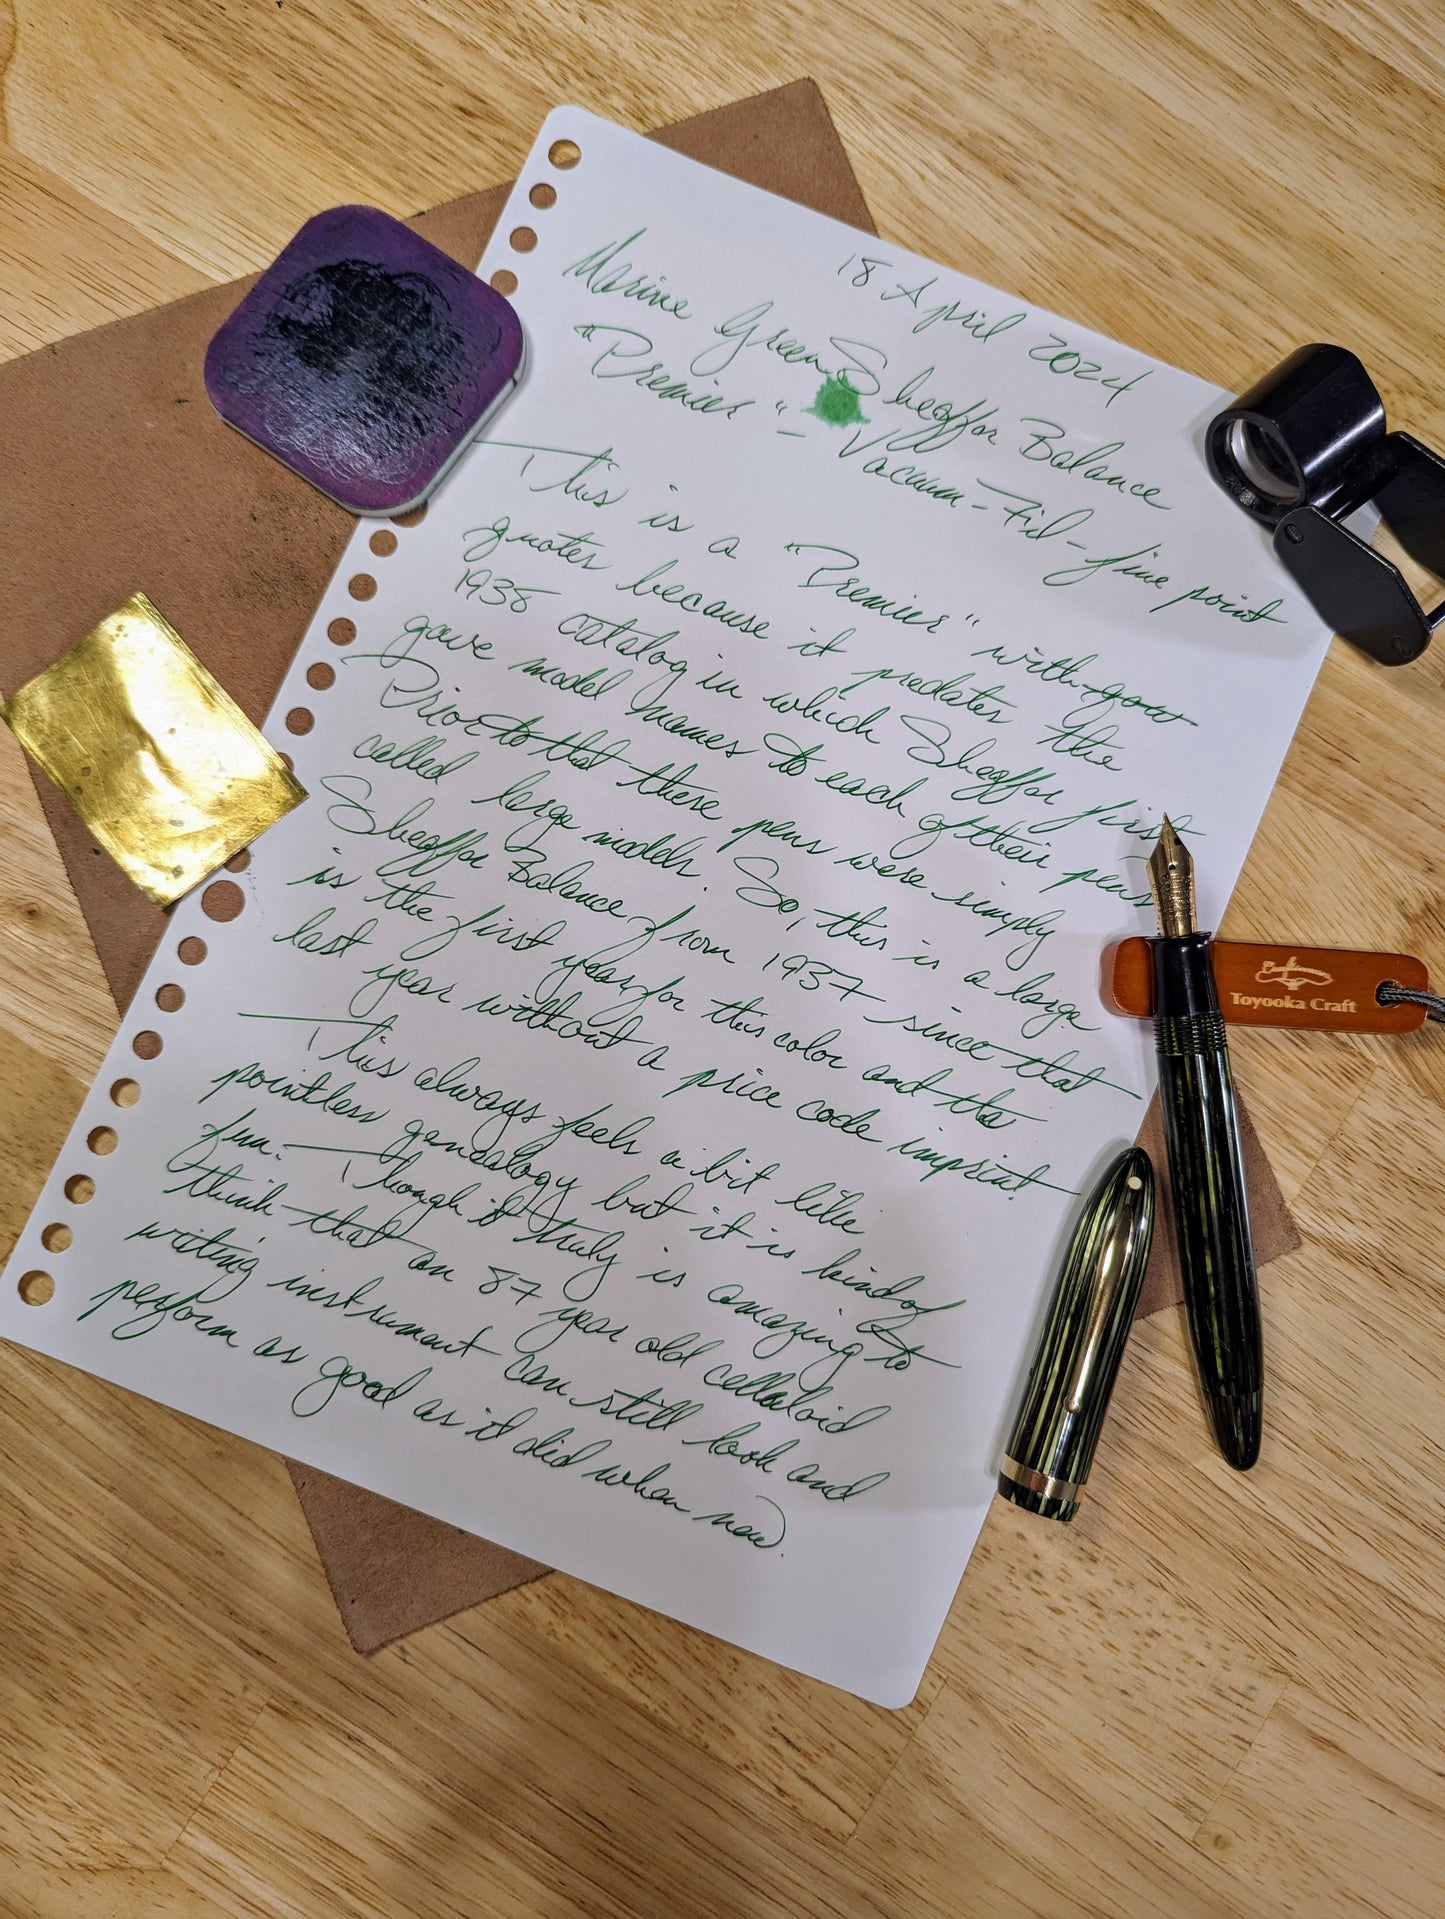 18 April 2024
Marine Green Sheaffer Balance
"Premier" – Vacuum-Fil – fine point
This is a "Premier" with
quotes because it predates the
1938 catalog in which Sheaffer first
gave model names to each of their pens
Prior to that these pens were simply
called large models. So, this is a large
Sheaffer Balance from 1937 since that
is the first year for this color and the
last year without a price code imprint.
This always feels a bit like
pointless genealogy but it is kind of
fun. Though it truly is amazing to
think that an 87 year old celluloid
writing instrument can still look and
perform as good as it did when new.
Toyooka Craft